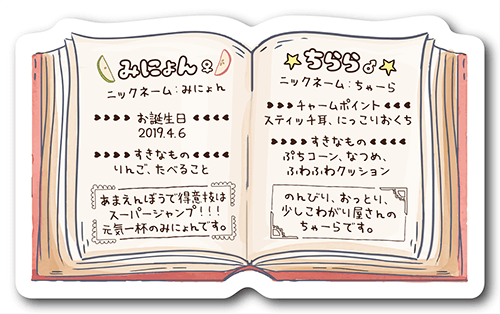 みにょん♀
ニックネーム:みにょん
お誕生日
2019.4.6
すきなもの
りんご、たべること
あまえんぼうで得意技は
スーパージャンプ!!!
元気一杯のみにょんです。
ちらら♂
ニックネーム:ちゃーら
チャームポイント
スティッチ耳、にっこりおくち
すきなもの
ぷちコーン、なつめ、
ふわふわクッション
のんびり、おっとり、
少しこわがり屋さんの
ちゃーらです。